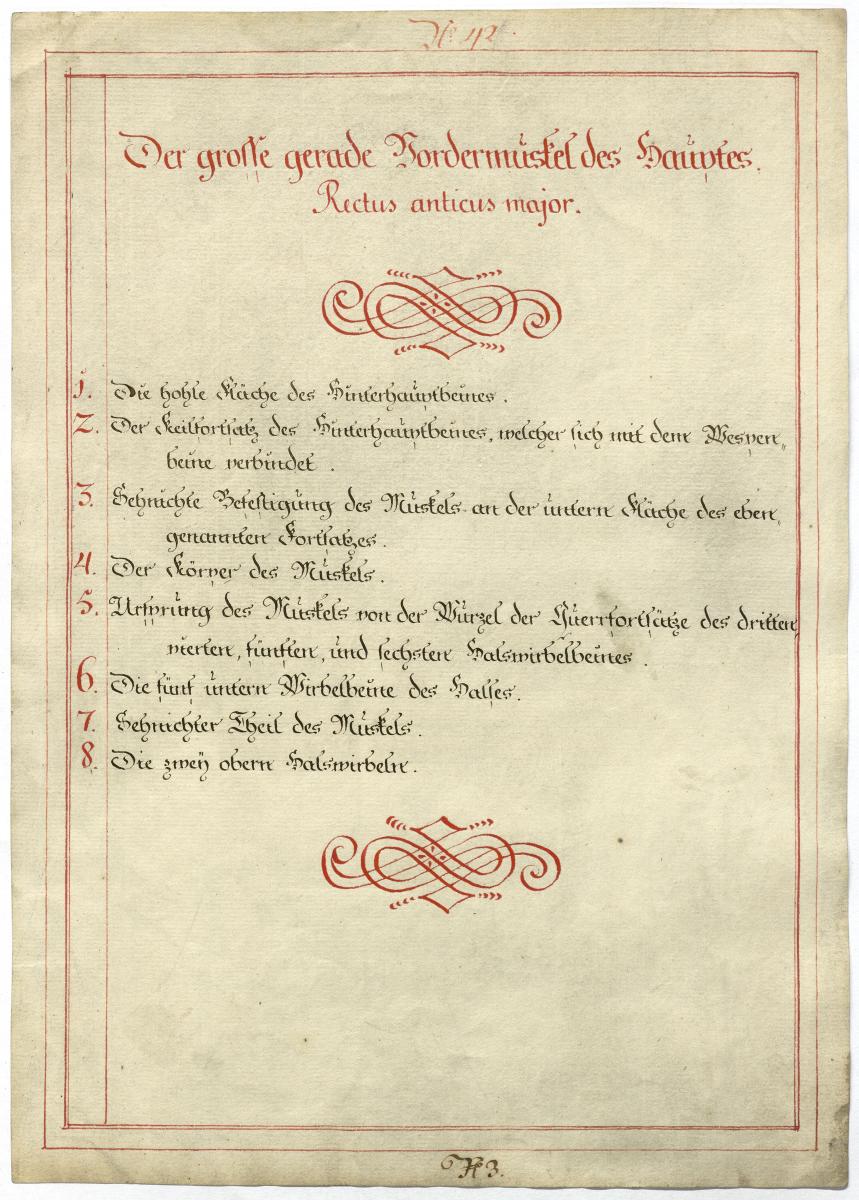 No 42.
Der grosse gerade Vordermuskel des Hauptes.
Rectus anticus major.
1. Die hohle Fläche des Hinterhauptbeines.
2. Der Keilfortsatz des Hinterhauptbeines, welcher sich mit dem Wespen„
beine verbindet.
3. Sehnichte Befestigung des Muskels an der untern Fläche des eben„
genannten Fortsatzes.
4. Der Körper des Muskels.
5. Ursprung des Muskels von der Wurzel der Querrfortsätze des dritten,
vierten, fünften, und sechsten Halswirbelbeines.
6. Die fünf untern Wirbelbeine des Halses.
7. Sehnichter Theil des Muskels.
8. Die zweÿ obern Halswirbeln.
3.